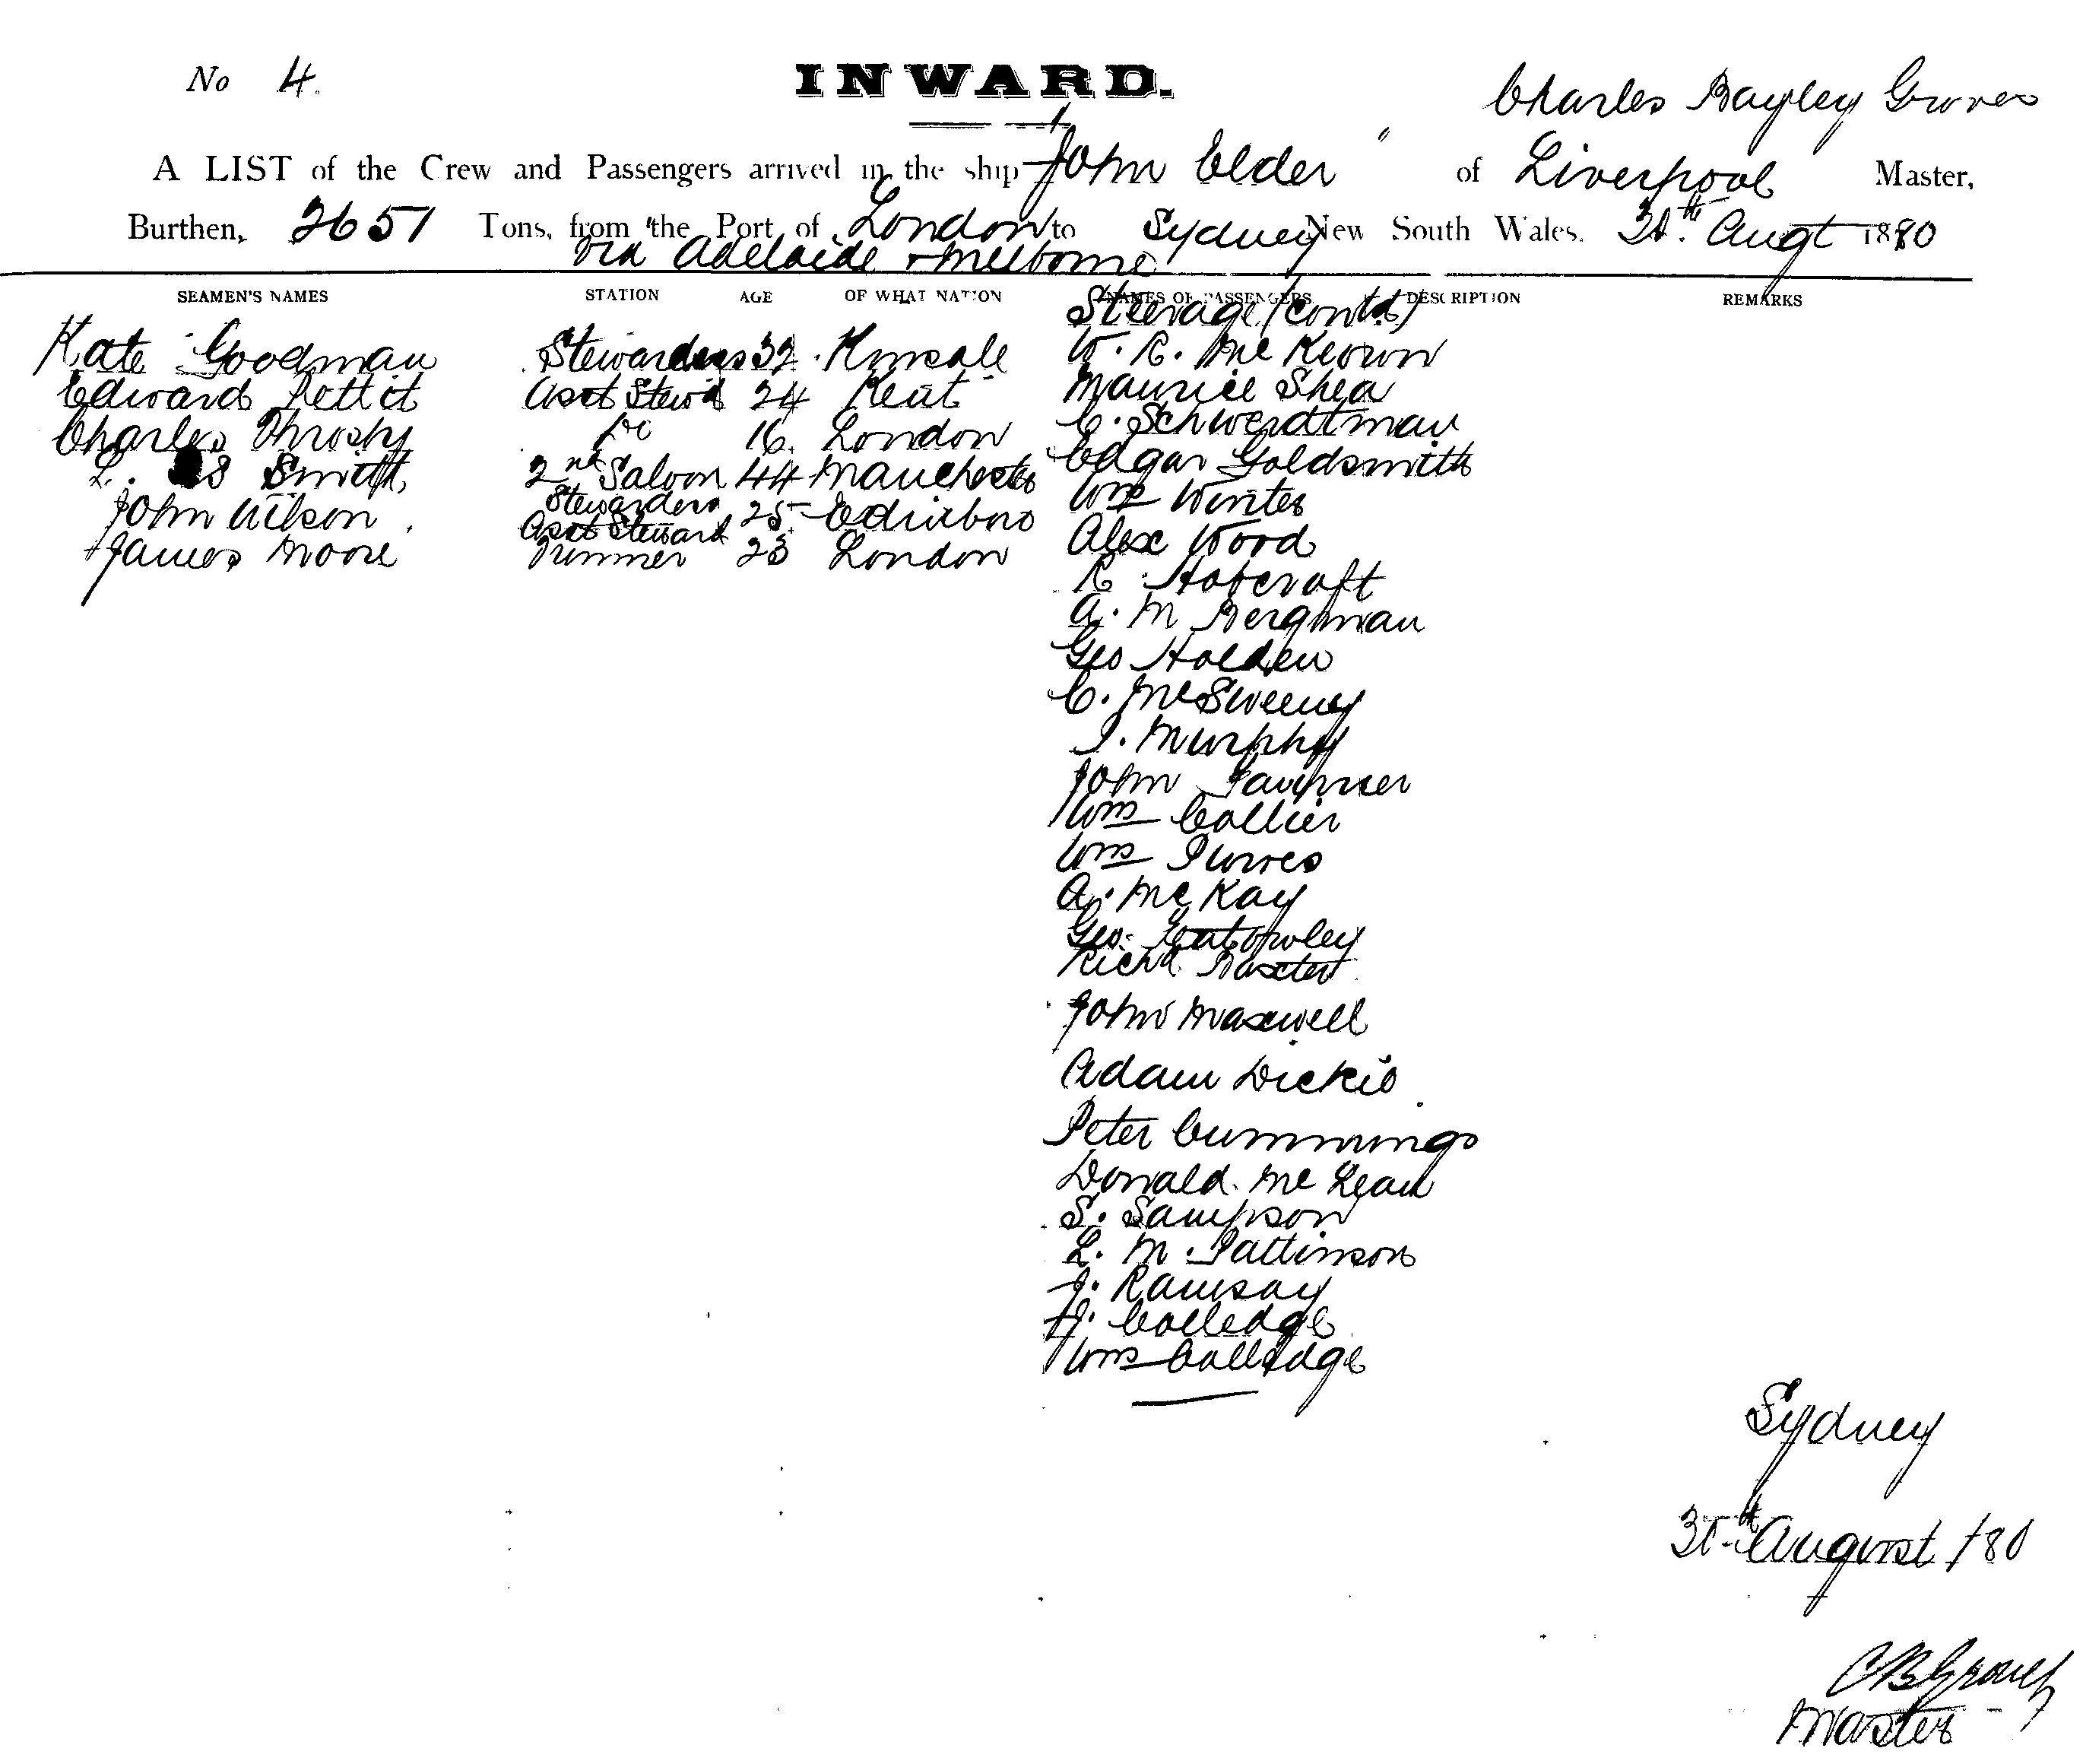 No 4.
INWARD.
Charles Bayley Groves
A LIST of the Crew and Passengers arrived in the ship "John Elder" of Liverpool Master,
Burthen, 2651 Tons, from the Port of London to Sydney New South Wales. Augt 1880
via Adelaide & Melborne
SEAMEN'S NAMES STATION AGE OF WHAT NATION NAMES OF PASSENGERS. DESCRIPTION REMARKS
Steerage (contd)
Kate Goodman Stewardess 32 Kinsale W. R. McKeown
Edward Pettit Asst Stewd 24 Kent Maurice Shea
Charles Throsby Do 16 London C. Schwerdtman
L. S Smith 2nd Saloon Stewardess 44 Manchester Edgar Goldsmith
John Wilson Asst Steward 25 Edinboro Wm Winter
James Moore Trimmer 23 London Alex Wood
R Hobcroft
A. M Bergman
Geo Holden
C. McSweeny
J. Murphy
John
Wm Collier
Wm Purves
A. McKay
Geo.
Richd Baxter
John Maxwell
Adam Dickie
Peter Cummings
Donald McLean
S. Sampson
L. M. Pattinson
J. Ramsay
J. Colledge
Wm Colledge
Sydney
August /80
C B Groves
Master